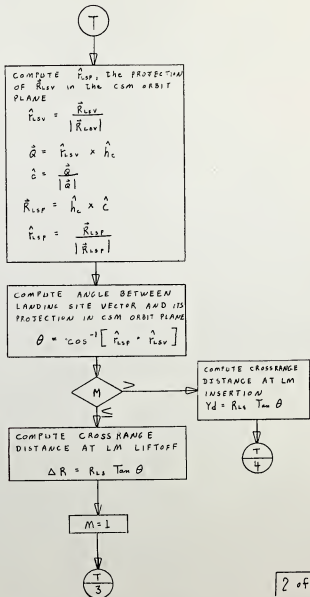 T
COMPUTE r̂LSP, the PROJECTION
OF R⃗LSV in the CSM ORBIT
PLANE
r̂LSV = R⃗LSV / |R⃗LSV|
Q⃗ = r̂LSV × ĥc
ĉ = Q⃗ / |Q⃗|
R⃗LSP = ĥc × ĉ
r̂LSP = R⃗LSP / |R⃗LSP|
COMPUTE ANGLE BETWEEN
LANDING SITE VECTOR AND ITS
PROJECTION IN CSM ORBIT PLANE
θ = cos⁻¹[ r̂LSP · r̂LSV ]
M
>
≤
COMPUTE CROSSRANGE
DISTANCE AT LM
INSERTION
Yd = RLS Tan θ
T
4
COMPUTE CROSSRANGE
DISTANCE AT LM LIFTOFF
ΔR = RLS Tan θ
M=1
T
3
2 of